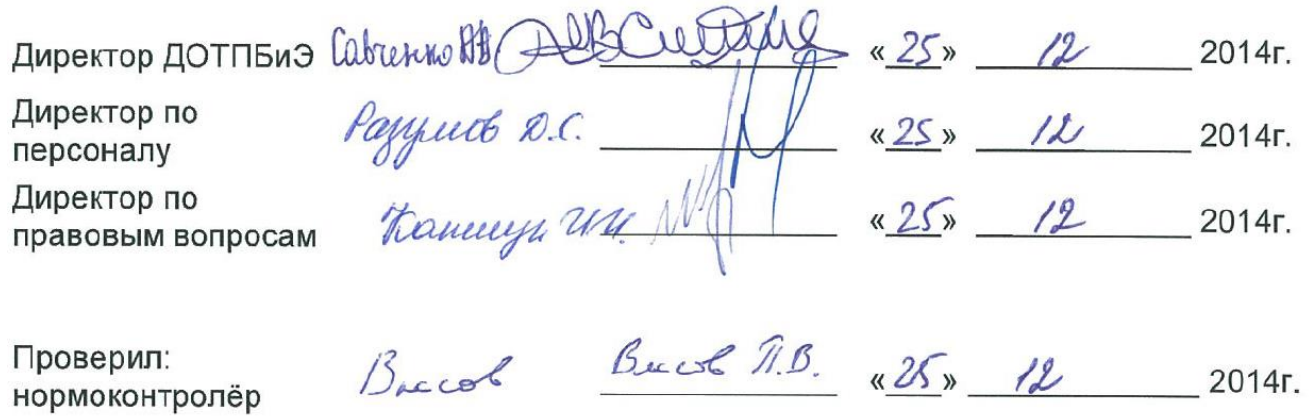 Директор ДОТПБиЭ Савченко «25» 12 2014г.
Директор по
персоналу Разумов Д.С. «25» 12 2014г.
Директор по
правовым вопросам «25» 12 2014г.
Проверил:
нормоконтролёр П.В. «25» 12 2014г.